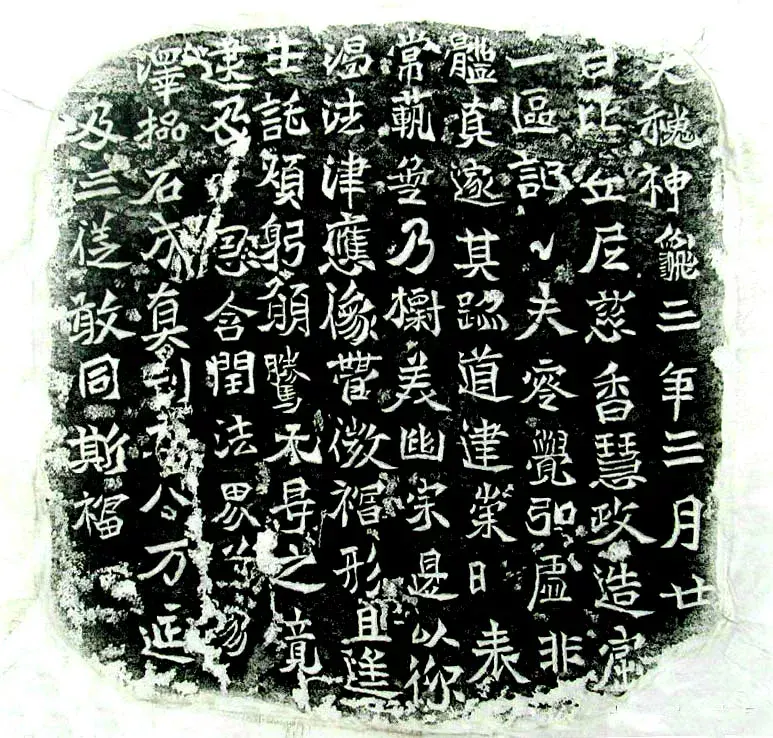 大魏神龜三年三月廿
日比丘尼慈香慧政造窟
一區記之夫零覺弘虛非
體真邃其跡道建崇日表
常軌無乃標美幽宗是以仰
渴法津應像營微福形且遙
生託煩躬願騰无㝵之竟
逮及恩含閏法界
澤石成真刊八万延
及三從敢同斯福